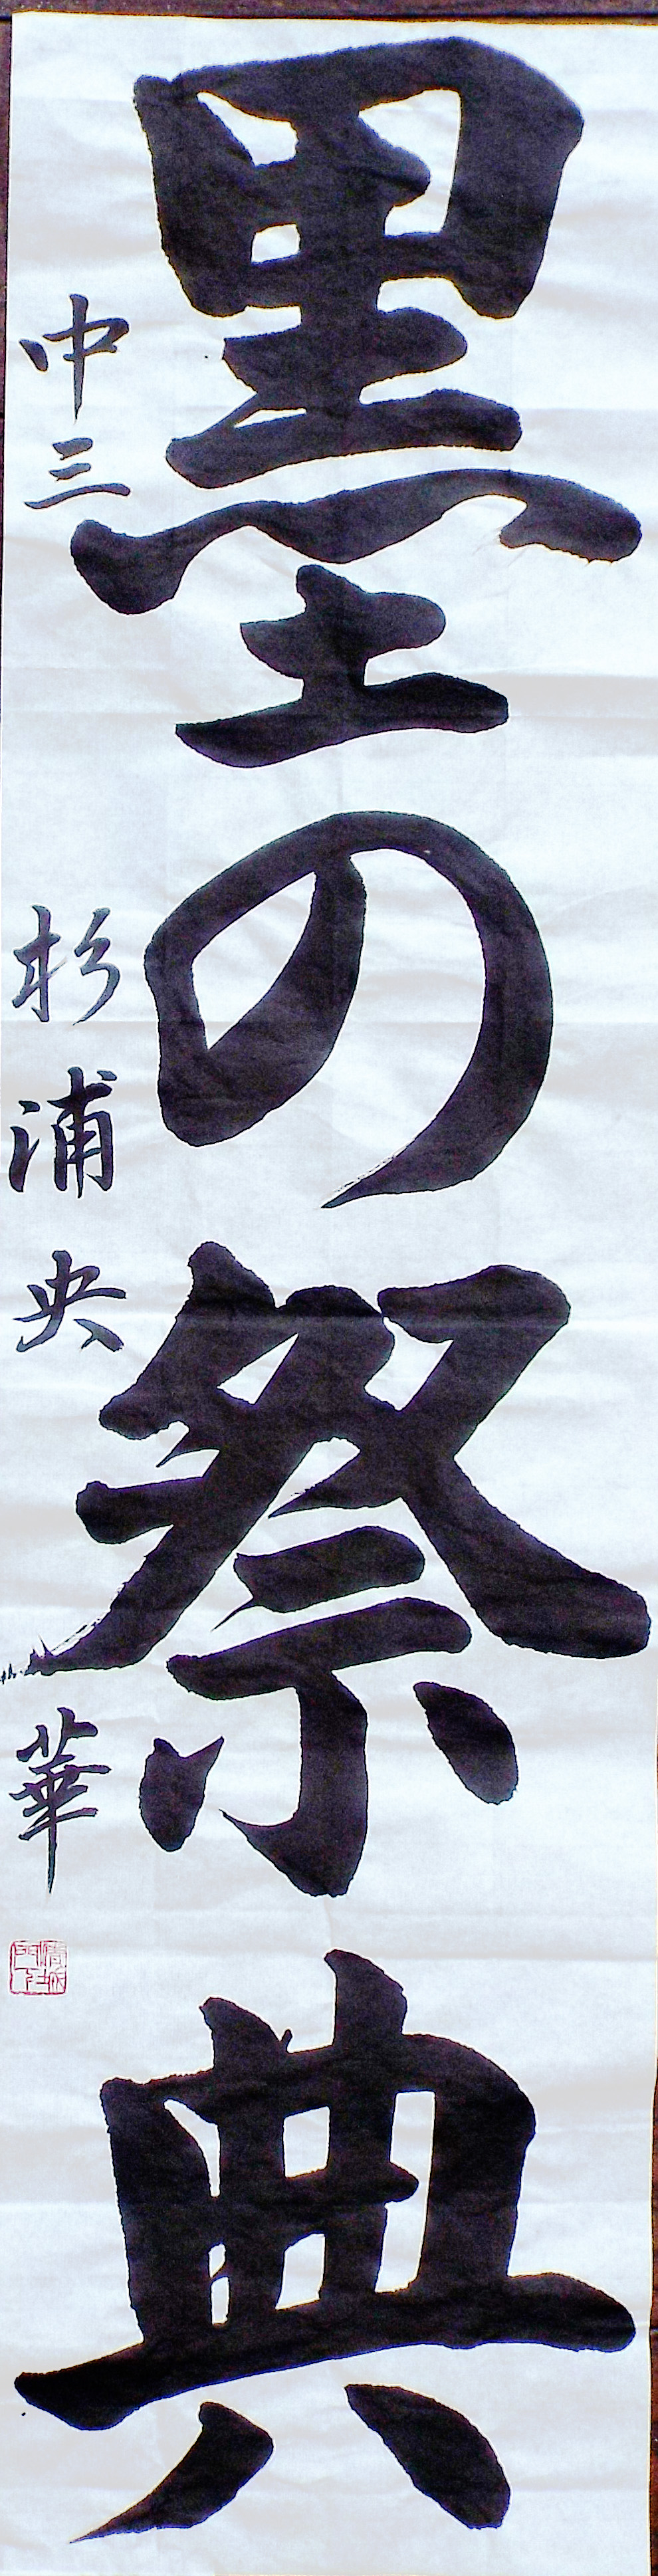 墨の祭典
中三 杉浦央華